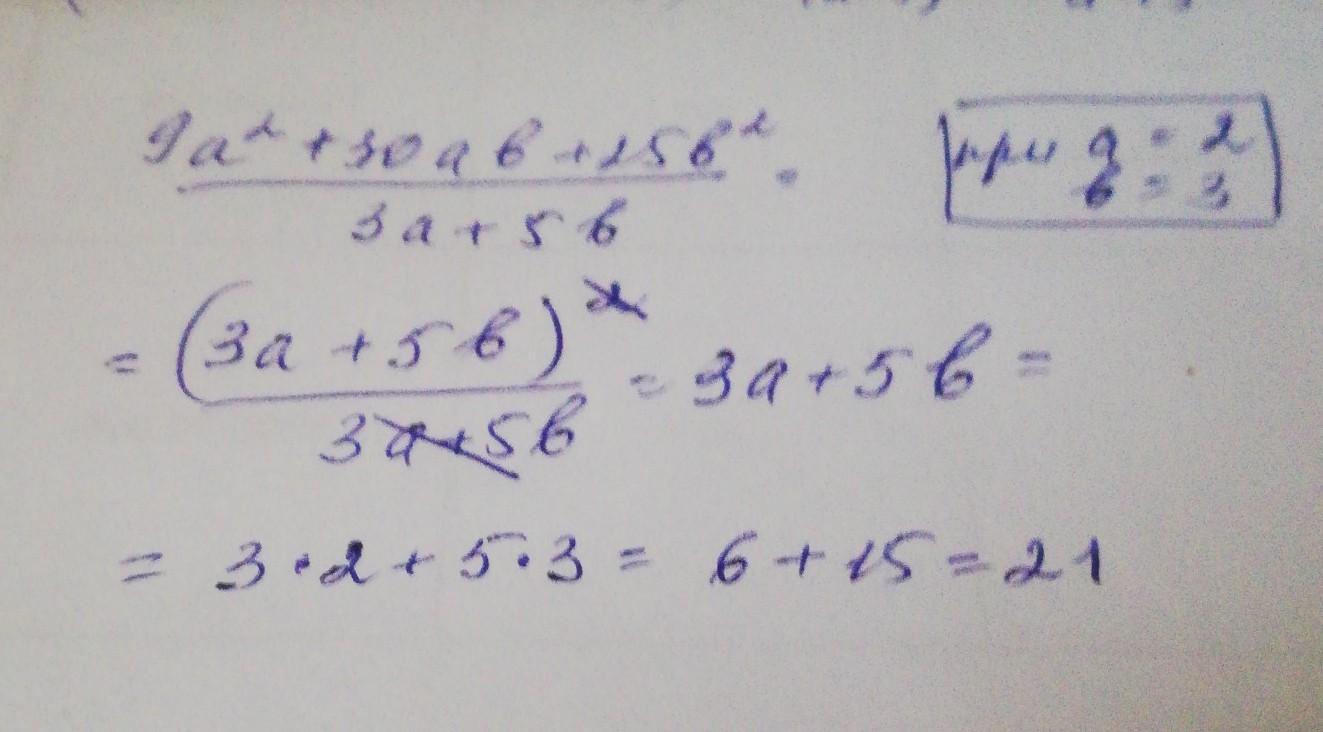 9a² + 30ab + 25b²
3a + 5b
=
при a = 2
b = 3
= (3a + 5b)²
3a + 5b
= 3a + 5b =
= 3 · 2 + 5 · 3 = 6 + 15 = 21